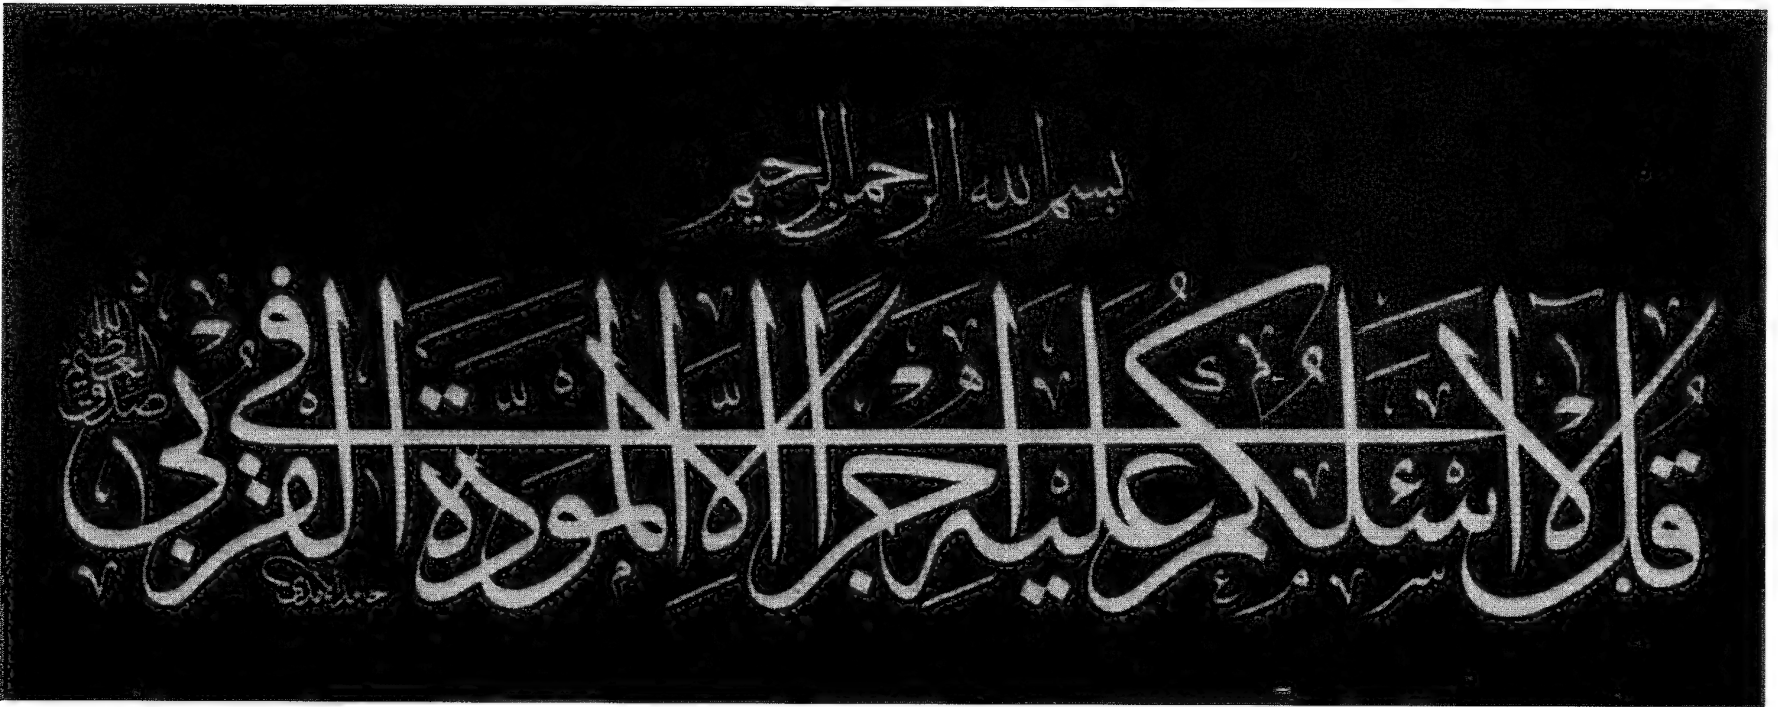 بسم الله الرحمن الرحيم
قل لا اسئلكم عليه اجرا الا المودة في القربى
صدق الله العظيم